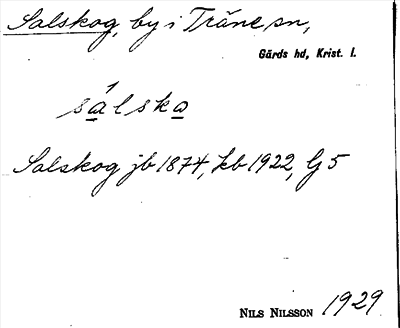 Salskog, by i Träne sn,
Gärds hd, Krist. l.
sálska
Salskog jb 1874, kb 1922, G 5
NILS NILSSON 1929